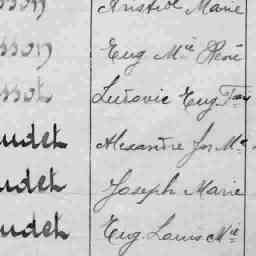 sson Aristide Marie
sson Eug Mie René
ssot Ludovic Eug. Fois
udet Alexandre Jos Me
udet Joseph Marie
udet Eug. Louis Mie